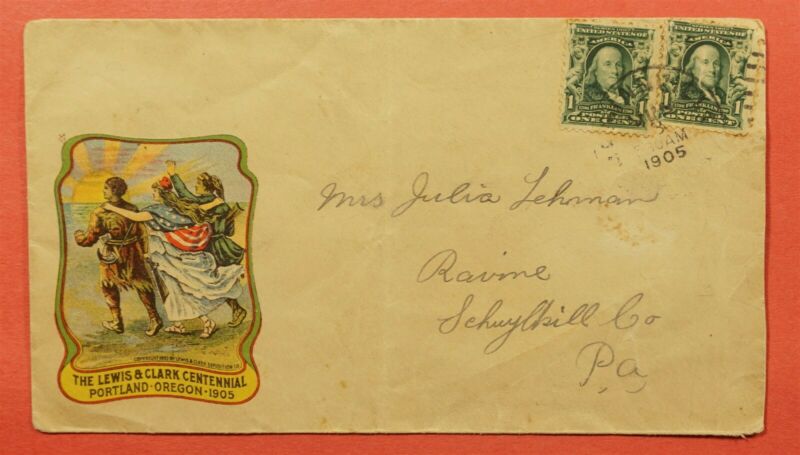 UNITED STATES OF
AMERICA
1 FRANKLIN 1
POSTAGE
ONE CENT
UNITED STATES OF
AMERICA
1 FRANKLIN 1
POSTAGE
ONE CENT
AM
1905
Mrs Julia Lehman
Ravine
Schuylkill Co
Pa
COPYRIGHT BY LEWIS & CLARK EXPOSITION CO.
THE LEWIS & CLARK CENTENNIAL
PORTLAND · OREGON · 1905